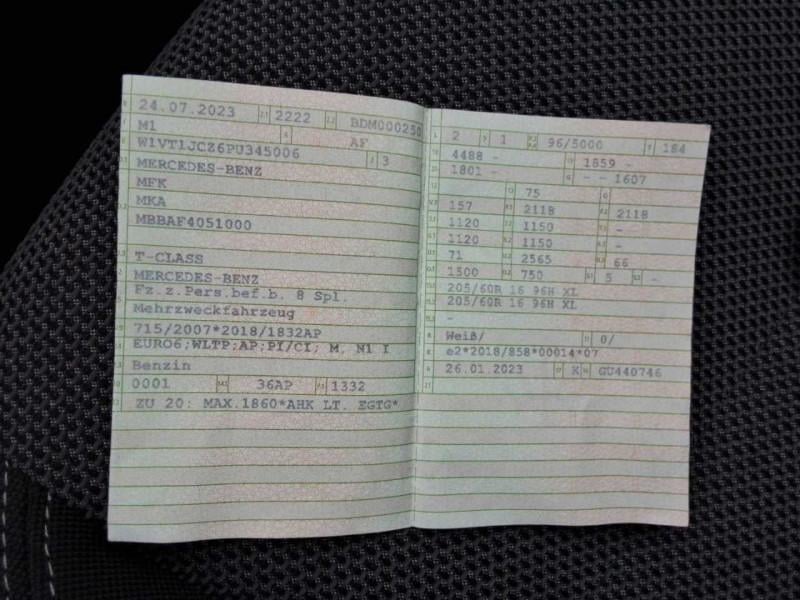 24.07.2023 2222 BDM000250
M1 AF
W1VT1JCZ6PU345006 3
MERCEDES-BENZ
MFK
MKA
MBBAF4051000
T-CLASS
MERCEDES-BENZ
Fz.z.Pers.bef.b. 8 Spl.
Mehrzweckfahrzeug
715/2007*2018/1832AP
EURO6;WLTP;AP;PI/CI; M, N1 I
Benzin
0001 36AP 1332
ZU 20: MAX.1860*AHK LT. EGTG*
2 1 96/5000 184
4488 - 1859 -
1801 - - - 1607
75
157 2118 2118
1120 1150 -
1120 1150 -
71 2565 66
1500 750 5 -
205/60R 16 96H XL
205/60R 16 96H XL
-
Weiß/ 0/
e2*2018/858*00014*07
26.01.2023 K GU440746